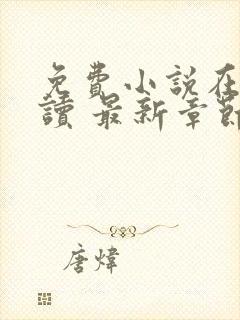 免費小說在
讀 最新章節
唐煒